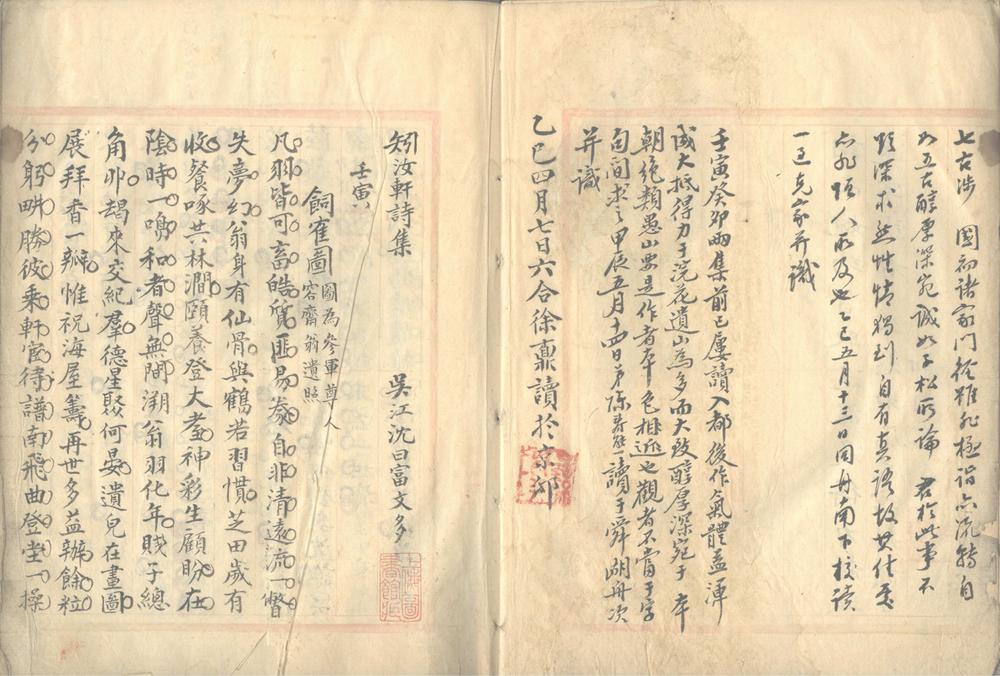 七古涉 國初諸家門徑雖非極詣亦流轉自
如五古醇厚深宛誠如子松所論 君於此事不
深求然性情獨到自有真語故其佳處
亦非恒人所及也乙巳五月十三日同舟南下校讀
一過克家并識
壬寅癸卯兩集前已屢讀入都後作氣體益渾
成大抵得力于浣花遺山為多而大致醇厚深宛于 本
朝絕類愚山要是作者本色相近也觀者不當于字
句間求之甲辰五月十四日弟陳壽熊讀于舜湖舟次
并識
乙巳四月七日六合徐鼒讀於京邸
汝軒詩集 吳江沈曰富文多
壬寅
飼隺圖 圖為參軍尊人
容齋翁遺照
凡羽皆可畜皓質匪易豢自非清遠流一瞥
失夢幻翁身有仙骨與鶴若習慣芝田歲有
收餐啄共林澗頤養登大耋神彩生顧盼在
陰時一鳴和者聲無間溯翁羽化年賤子總
角丱朅來交紀羣德星聚何晏遺兒在畫圖
展拜香一瓣惟祝海屋籌再世多益辦餘粒
分躬畊勝彼乘軒宦待譜南飛曲登堂一操